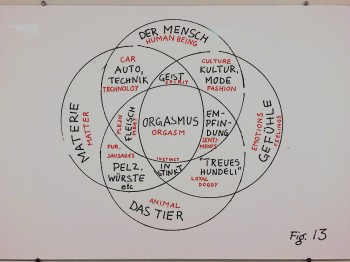 DER MENSCH
HUMAN BEING
CAR
AUTO,
TECHNIK
TECHNOLOY
GEIST
SPIRIT
CULTURE
KULTUR,
MODE
FASHION
MATERIE
MATTER
FLEISCH
MEAT
ORGASMUS
ORGASM
EM-
PFIN-
DUNG
SENTI-
MENTS
EMOTIONS
GEFÜHLE
FEELINGS
FUR,
SAUSAGES
PELZ,
WÜRSTE
etc
INSTINCT
IN
STINKT
"TREUES
HUNDELI"
LOYAL
DOGGY
ANIMAL
DAS TIER
Fig. 13